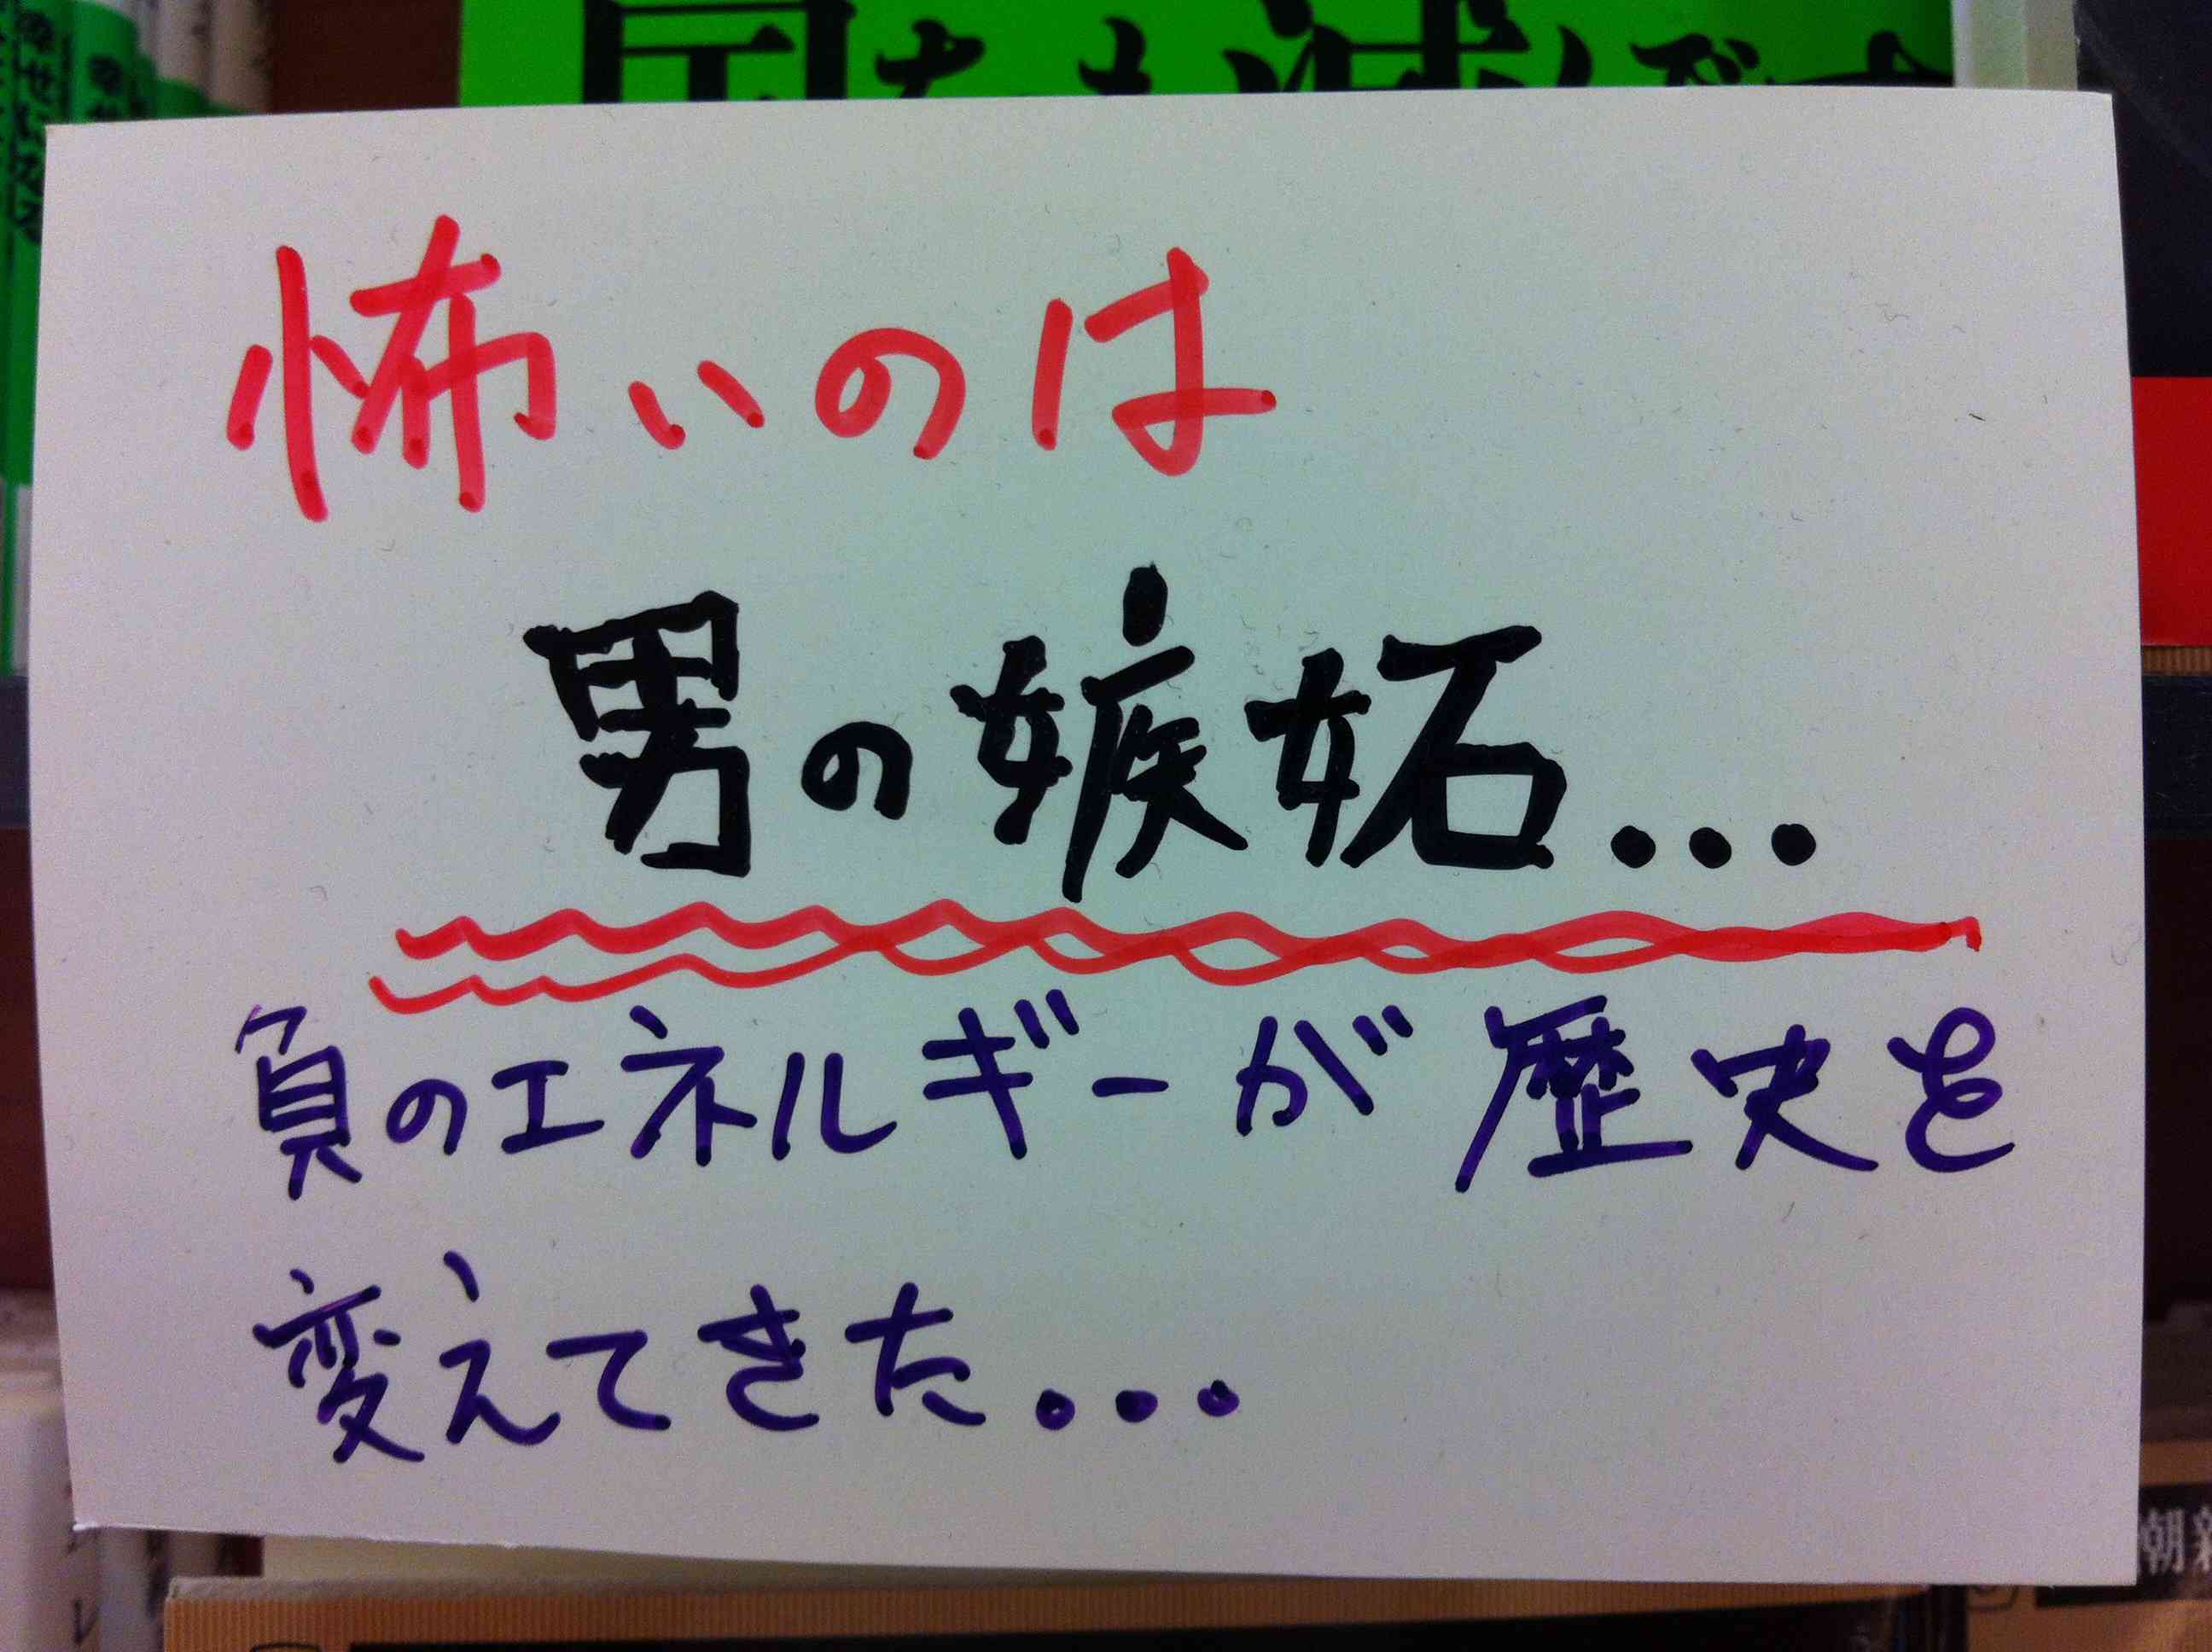 国をも滅ぼす
怖いのは
男の嫉妬...
負のエネルギーが歴史を
変えてきた...